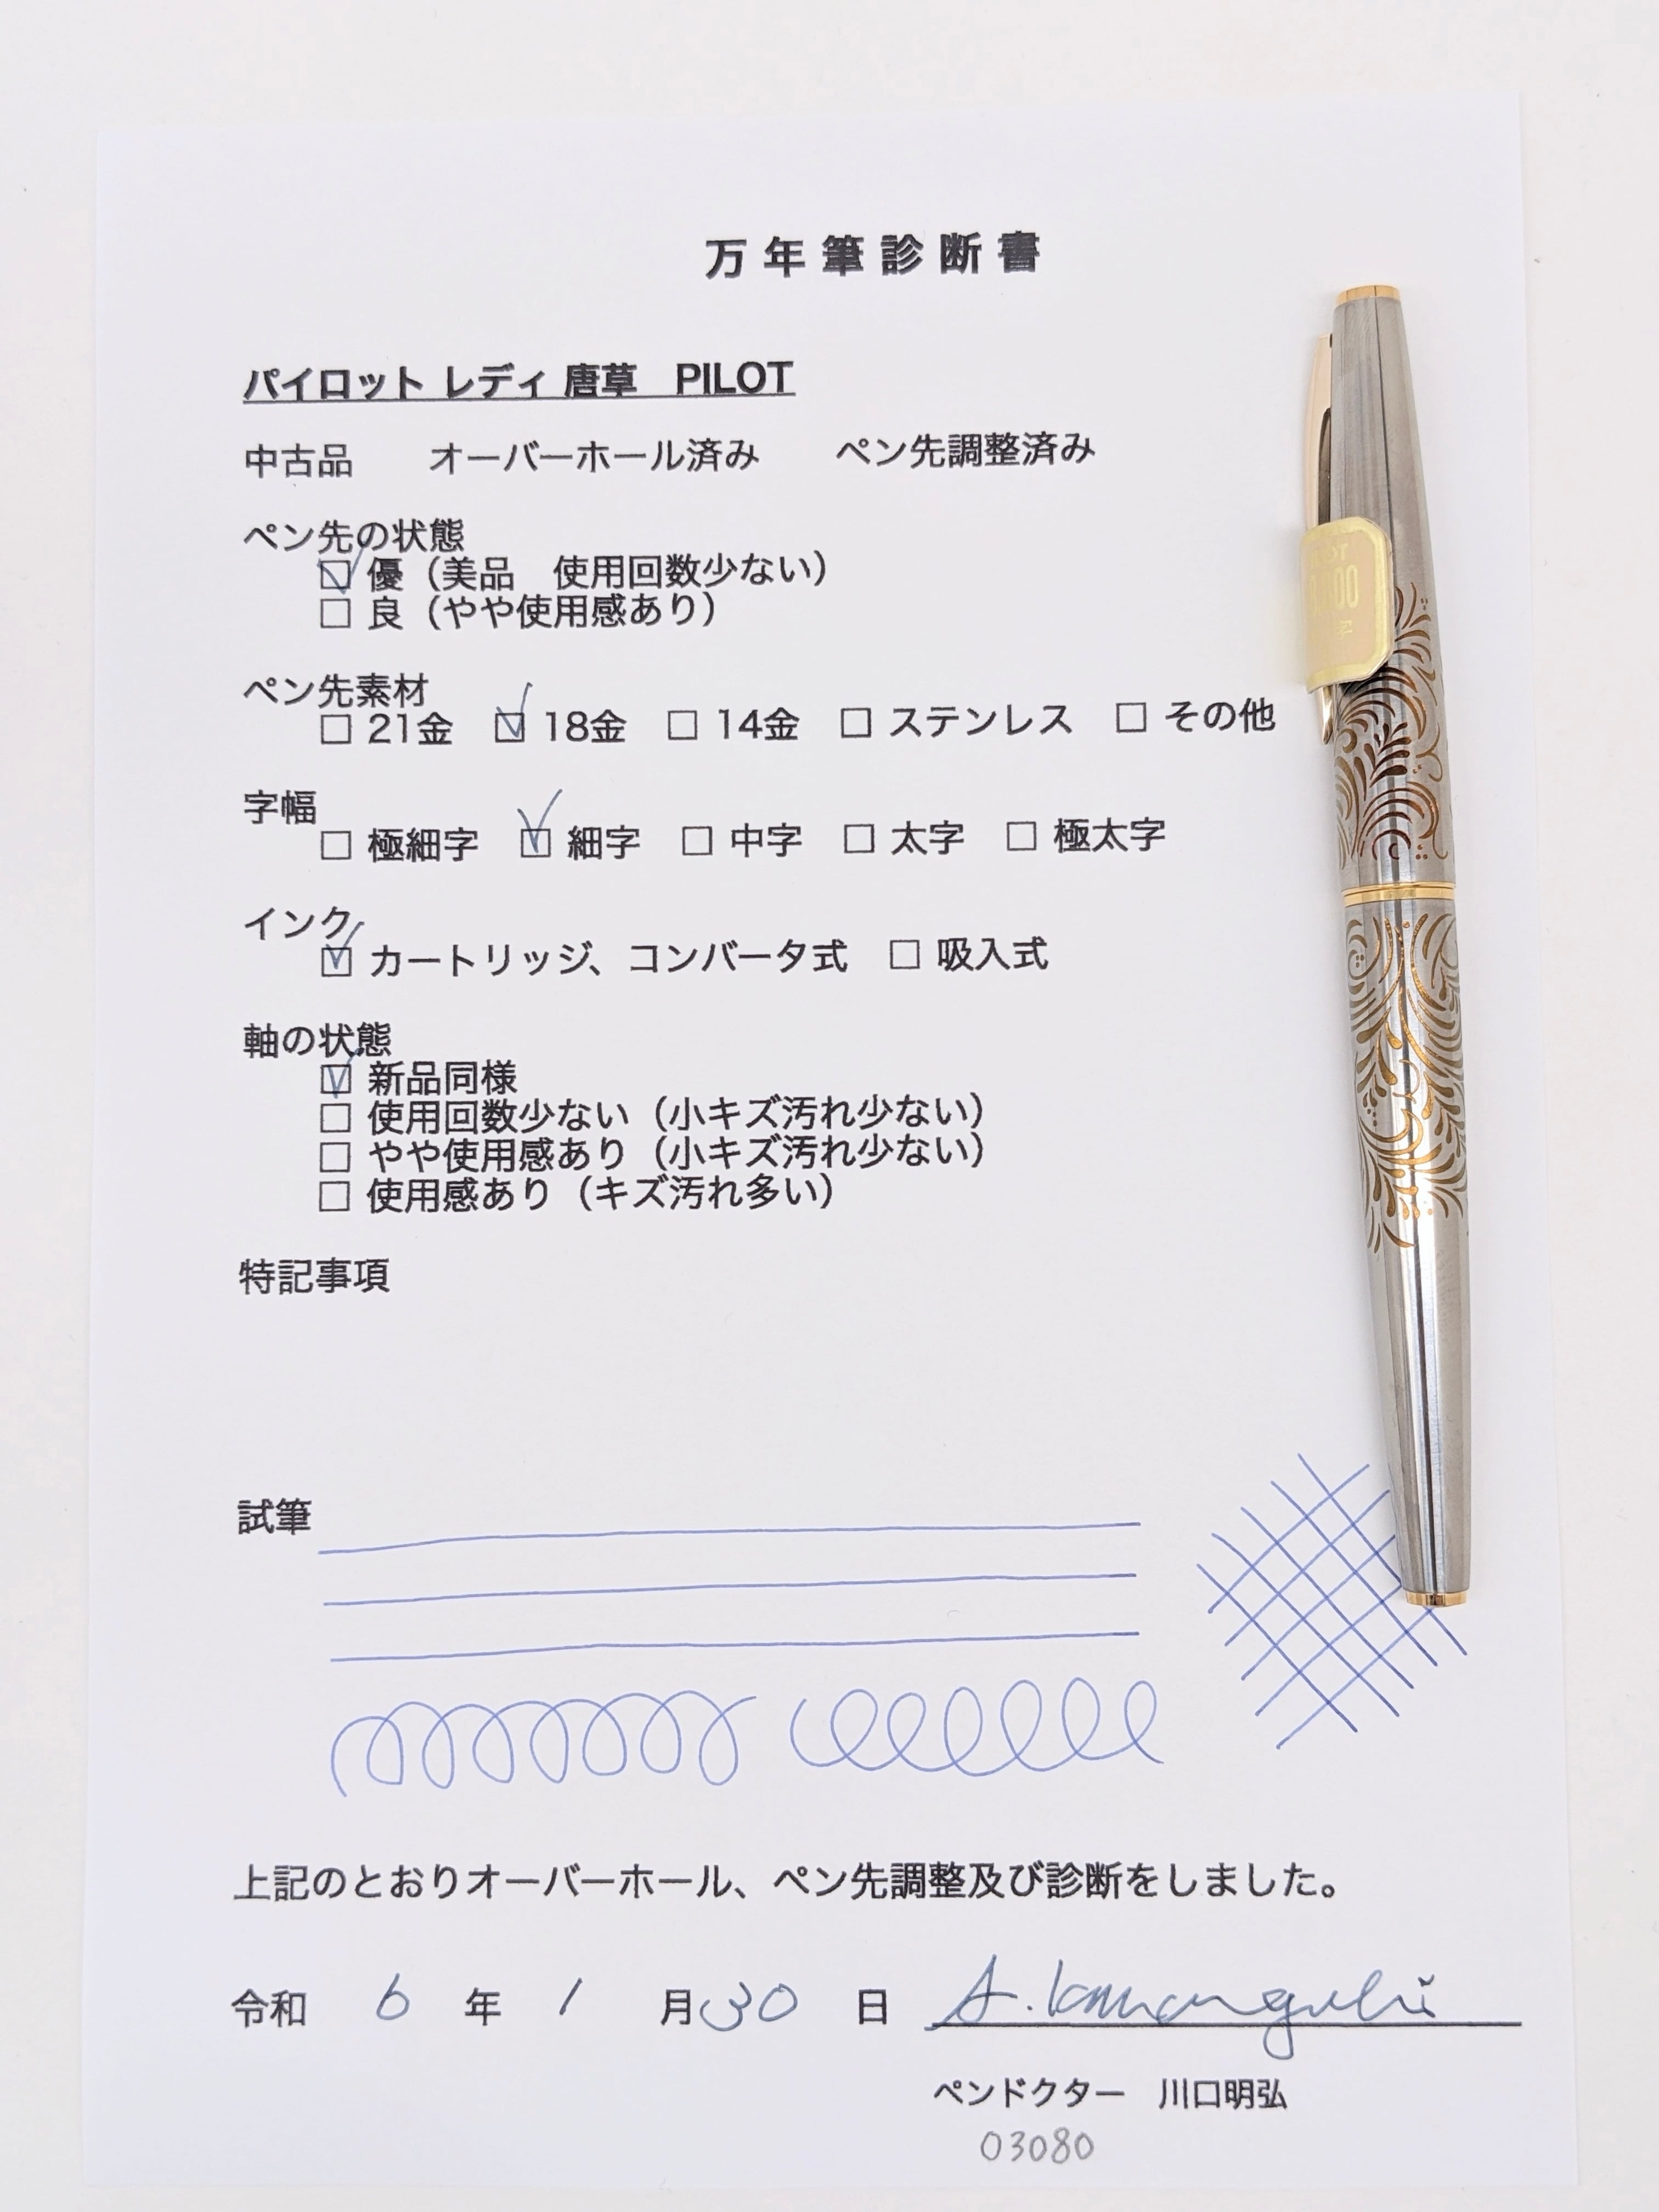 万年筆診断書
パイロット レディ 唐草　PILOT
中古品　　オーバーホール済み　　ペン先調整済み
ペン先の状態
☑ 優（美品　使用回数少ない）
☐ 良（やや使用感あり）
ペン先素材
☐ 21金　☑ 18金　☐ 14金　☐ ステンレス　☐ その他
字幅
☐ 極細字　☑ 細字　☐ 中字　☐ 太字　☐ 極太字
インク
☑ カートリッジ、コンバータ式　☐ 吸入式
軸の状態
☑ 新品同様
☐ 使用回数少ない（小キズ汚れ少ない）
☐ やや使用感あり（小キズ汚れ少ない）
☐ 使用感あり（キズ汚れ多い）
特記事項
試筆
上記のとおりオーバーホール、ペン先調整及び診断をしました。
令和　6　年　1　月 30　日　A. Kawaguchi
ペンドクター　川口明弘
03080